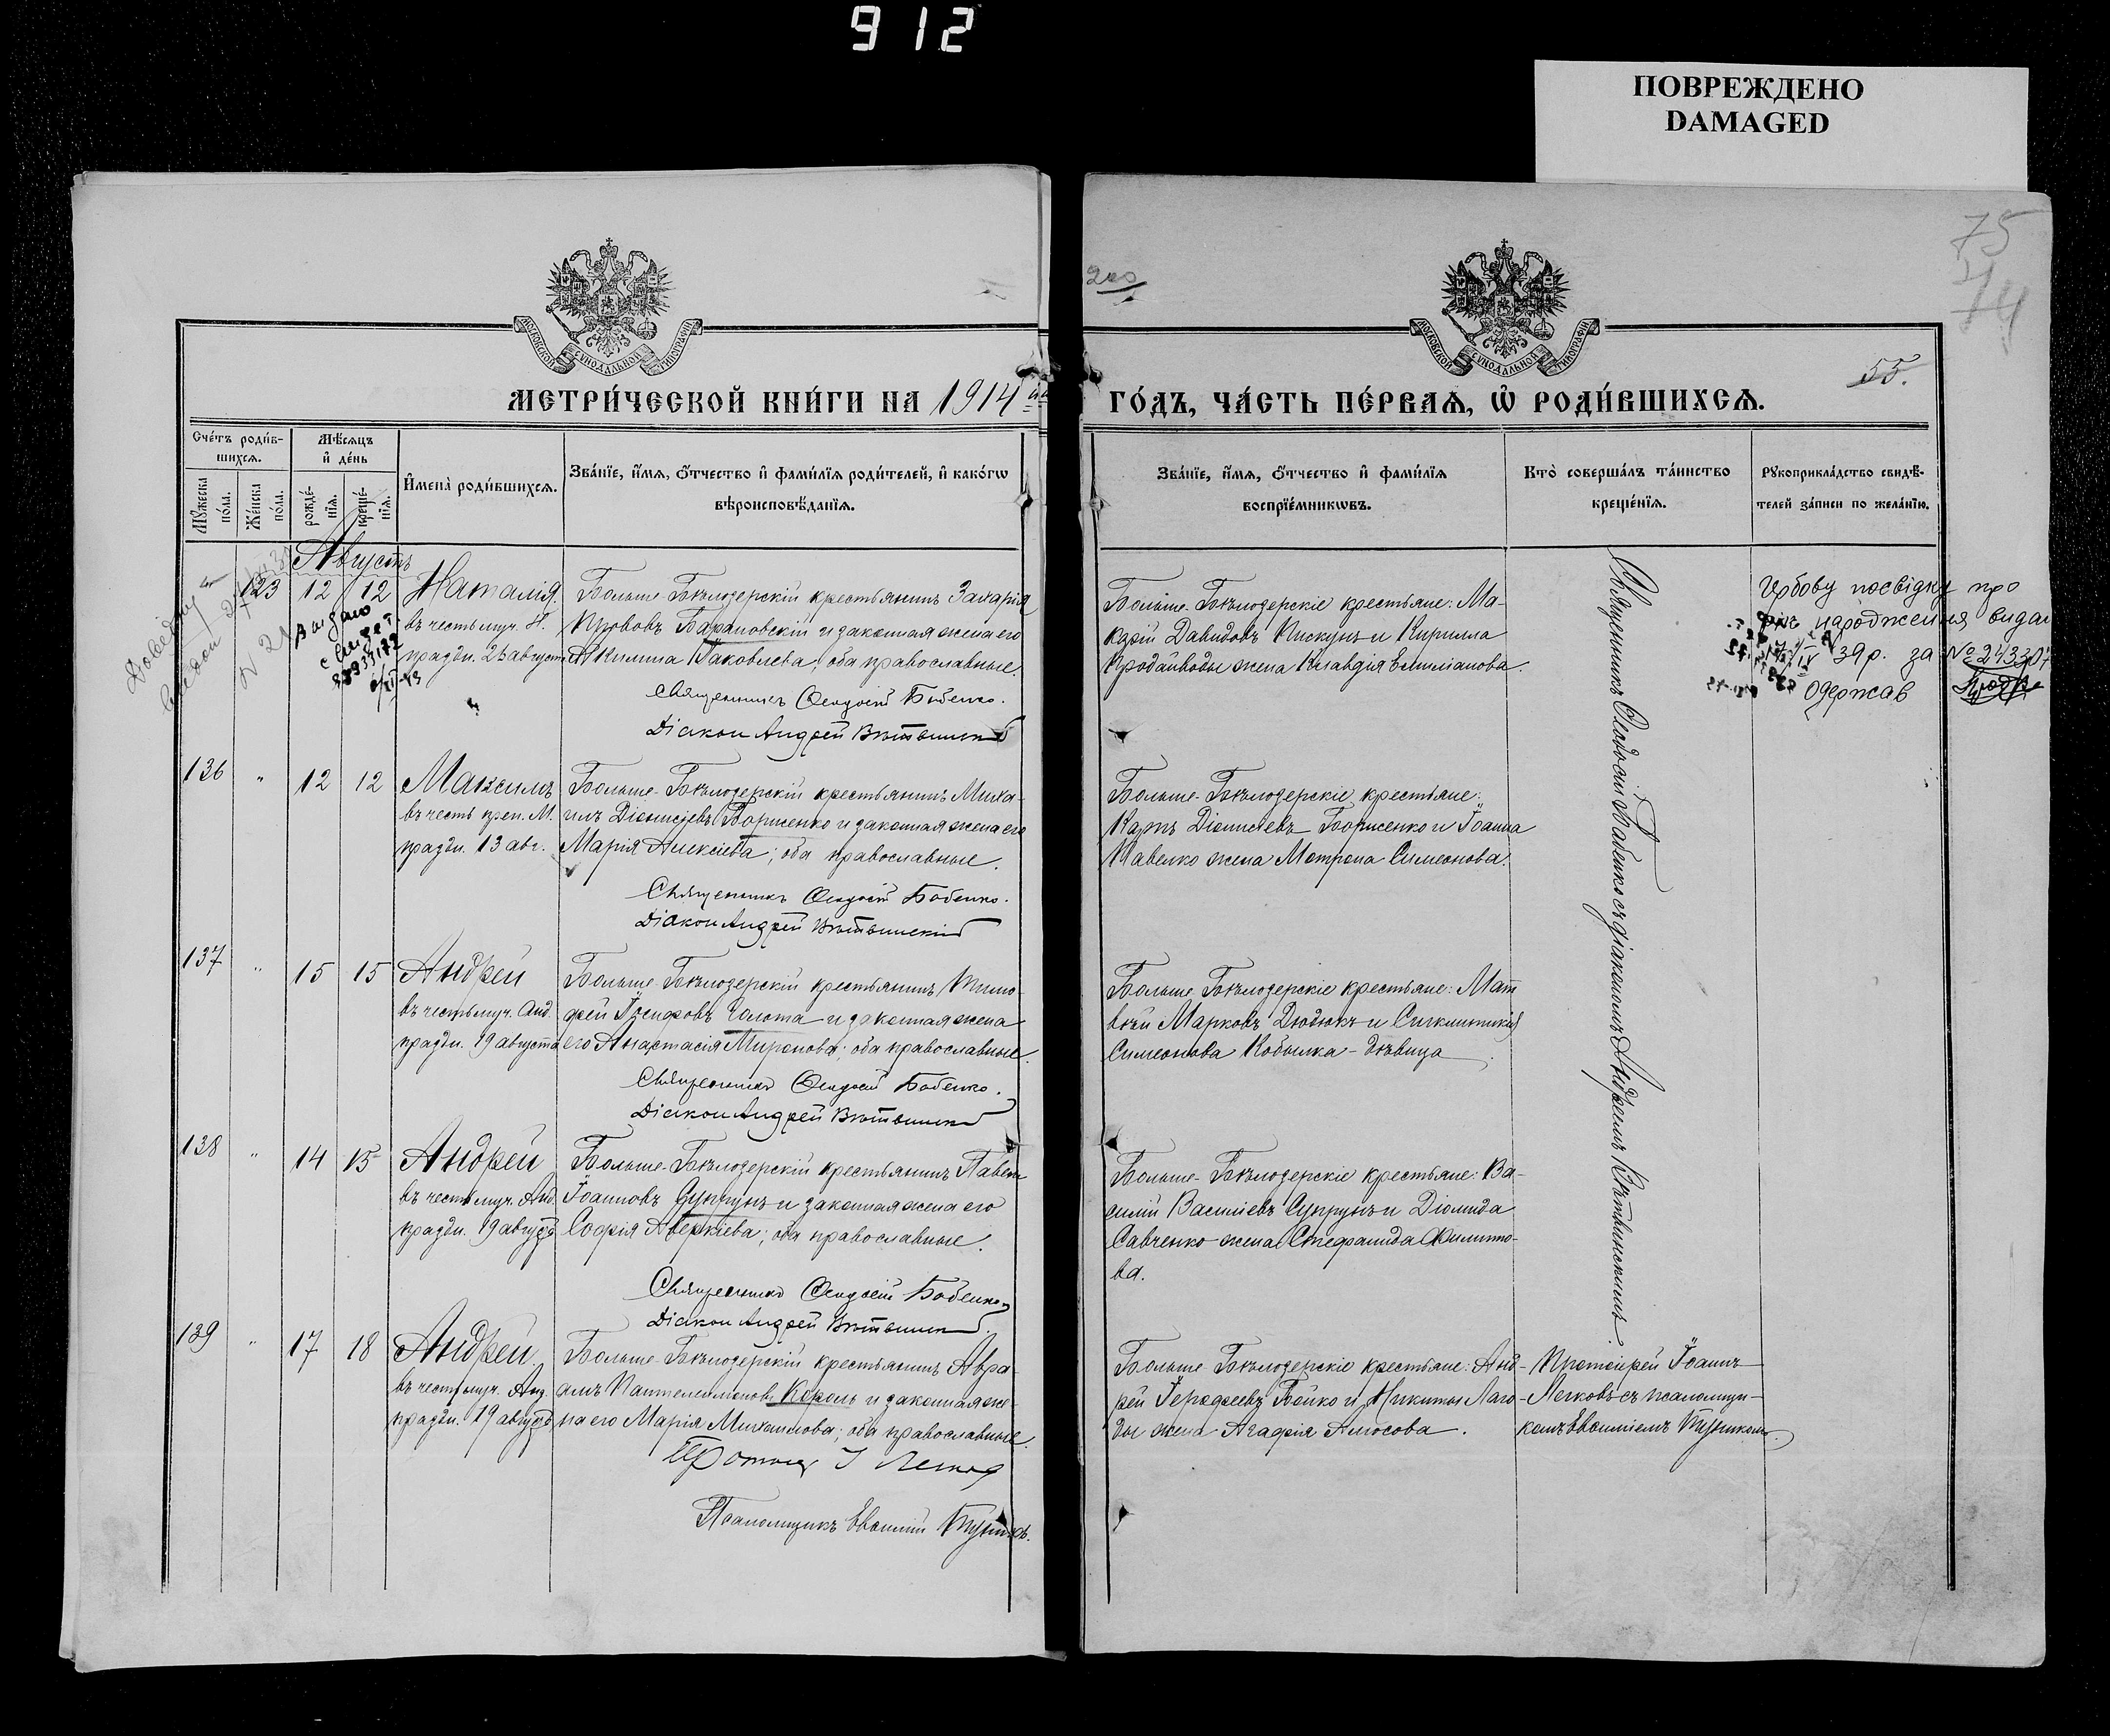 912
ПОВРЕЖДЕНО
DAMAGED
75
74
200
55.
МОСКОВСКОЙ СѴНОДАЛЬНОЙ ТИПОГРАФІИ
МОСКОВСКОЙ СѴНОДАЛЬНОЙ ТИПОГРАФІИ
МЕТРИ́ЧЕСКОЙ КНИ́ГИ НА 1914
ГО́ДЪ, ЧА́СТЬ ПЕ́РВАѦ, Ѽ РОДИ́ВШИХСѦ.
Сче́тъ роди́в-
шихсѧ.
Мѣ́сѧцъ
и҆ де́нь
Мꙋ́жеска по́ла.
Же́нска по́ла.
рожде́-
нїѧ.
креще́-
нїѧ.
И҆мена̀ роди́вшихсѧ.
Зва́нїе, и҆́мѧ, ѻ҆́тчество и҆ фами́лїѧ роди́телей, и҆ како́гѡ
вѣроисповѣ́данїѧ.
Зва́нїе, и҆́мѧ, ѻ҆́тчество и҆ фами́лїѧ
воспрїе́мникѡвъ.
Кто̀ соверша́лъ та́инство
креще́нїѧ.
Рꙋкоприкла́дство свидѣ́-
телей за́писи по жела́нїю.
Августъ
123 12 12 Наталія
въ честь муч. Н.
праздн. 26 августа
Больше-Бѣлозерскій крестьянинъ Захарія
Прововъ Барановскій и законная жена его
Акилина Іаковлева; оба православные.
Священникъ Ѳеодосій Бабенко.
Діаконъ Андрей Вѣтвинскій
Больше-Бѣлозерскіе крестьяне: Ма-
карій Давидовъ Пискунъ и Кирилла
Продайводы жена Клавдія Емиліанова.
Выдано
Священникъ Ѳеодосій Бабенко съ діакономъ Андреемъ Вѣтвинскимъ.
посвідку про
народження видан
39 р. за № 24330
Одержав
136 " 12 12 Максимъ
въ честь преп. М.
праздн. 13 авг.
Больше-Бѣлозерскій крестьянинъ Миха-
илъ Діонисіевъ Борисенко и законная жена его
Марія Алексіева; оба православные.
Священникъ Ѳеодосій Бабенко.
Діаконъ Андрей Вѣтвинскій
Больше-Бѣлозерскіе крестьяне:
Карпъ Діонисіевъ Борисенко и Іоанна
Павенко жена Мотрона Симеонова.
137 " 15 15 Андрей
въ честь муч. Анд.
праздн. 19 августа
Больше-Бѣлозерскій крестьянинъ Тимо-
фей Іосифовъ Голота и законная жена
его Анастасія Миронова; оба православные.
Священникъ Ѳеодосій Бабенко.
Діаконъ Андрей Вѣтвинскій
Больше-Бѣлозерскіе крестьяне: Мат-
вѣй Марковъ Дюдюкъ и Синклитикія
Симеонова Кобылка - дѣвица.
138 " 14 15 Андрей
въ честь муч. Анд.
праздн. 19 августа
Больше-Бѣлозерскій крестьянинъ Павелъ
Іоанновъ Супрунъ и законная жена его
Софія Аверкіева; оба православные.
Священникъ Ѳеодосій Бабенко.
Діаконъ Андрей Вѣтвинскій.
Больше-Бѣлозерскіе крестьяне: Ва-
силій Василіевъ Супрунъ и Діомида
Савченко жена Стефанида Филиппо-
ва.
139 " 17 18 Андрей
въ честь муч. Анд.
праздн. 19 августа
Больше-Бѣлозерскій крестьянинъ Авра-
амъ Пантелеимоновъ Король и законная же-
на его Марія Михаилова; оба православные.
Протоіер І Легков
Псаломщикъ Евѳимій
Больше-Бѣлозерскіе крестьяне: Анд-
рей Іероѳеевъ Бойко и Никиты Лаго-
ды жена Агафія Амосова.
Протоіерей Іоаннъ
Легковъ съ псаломщи-
комъ Евѳиміемъ